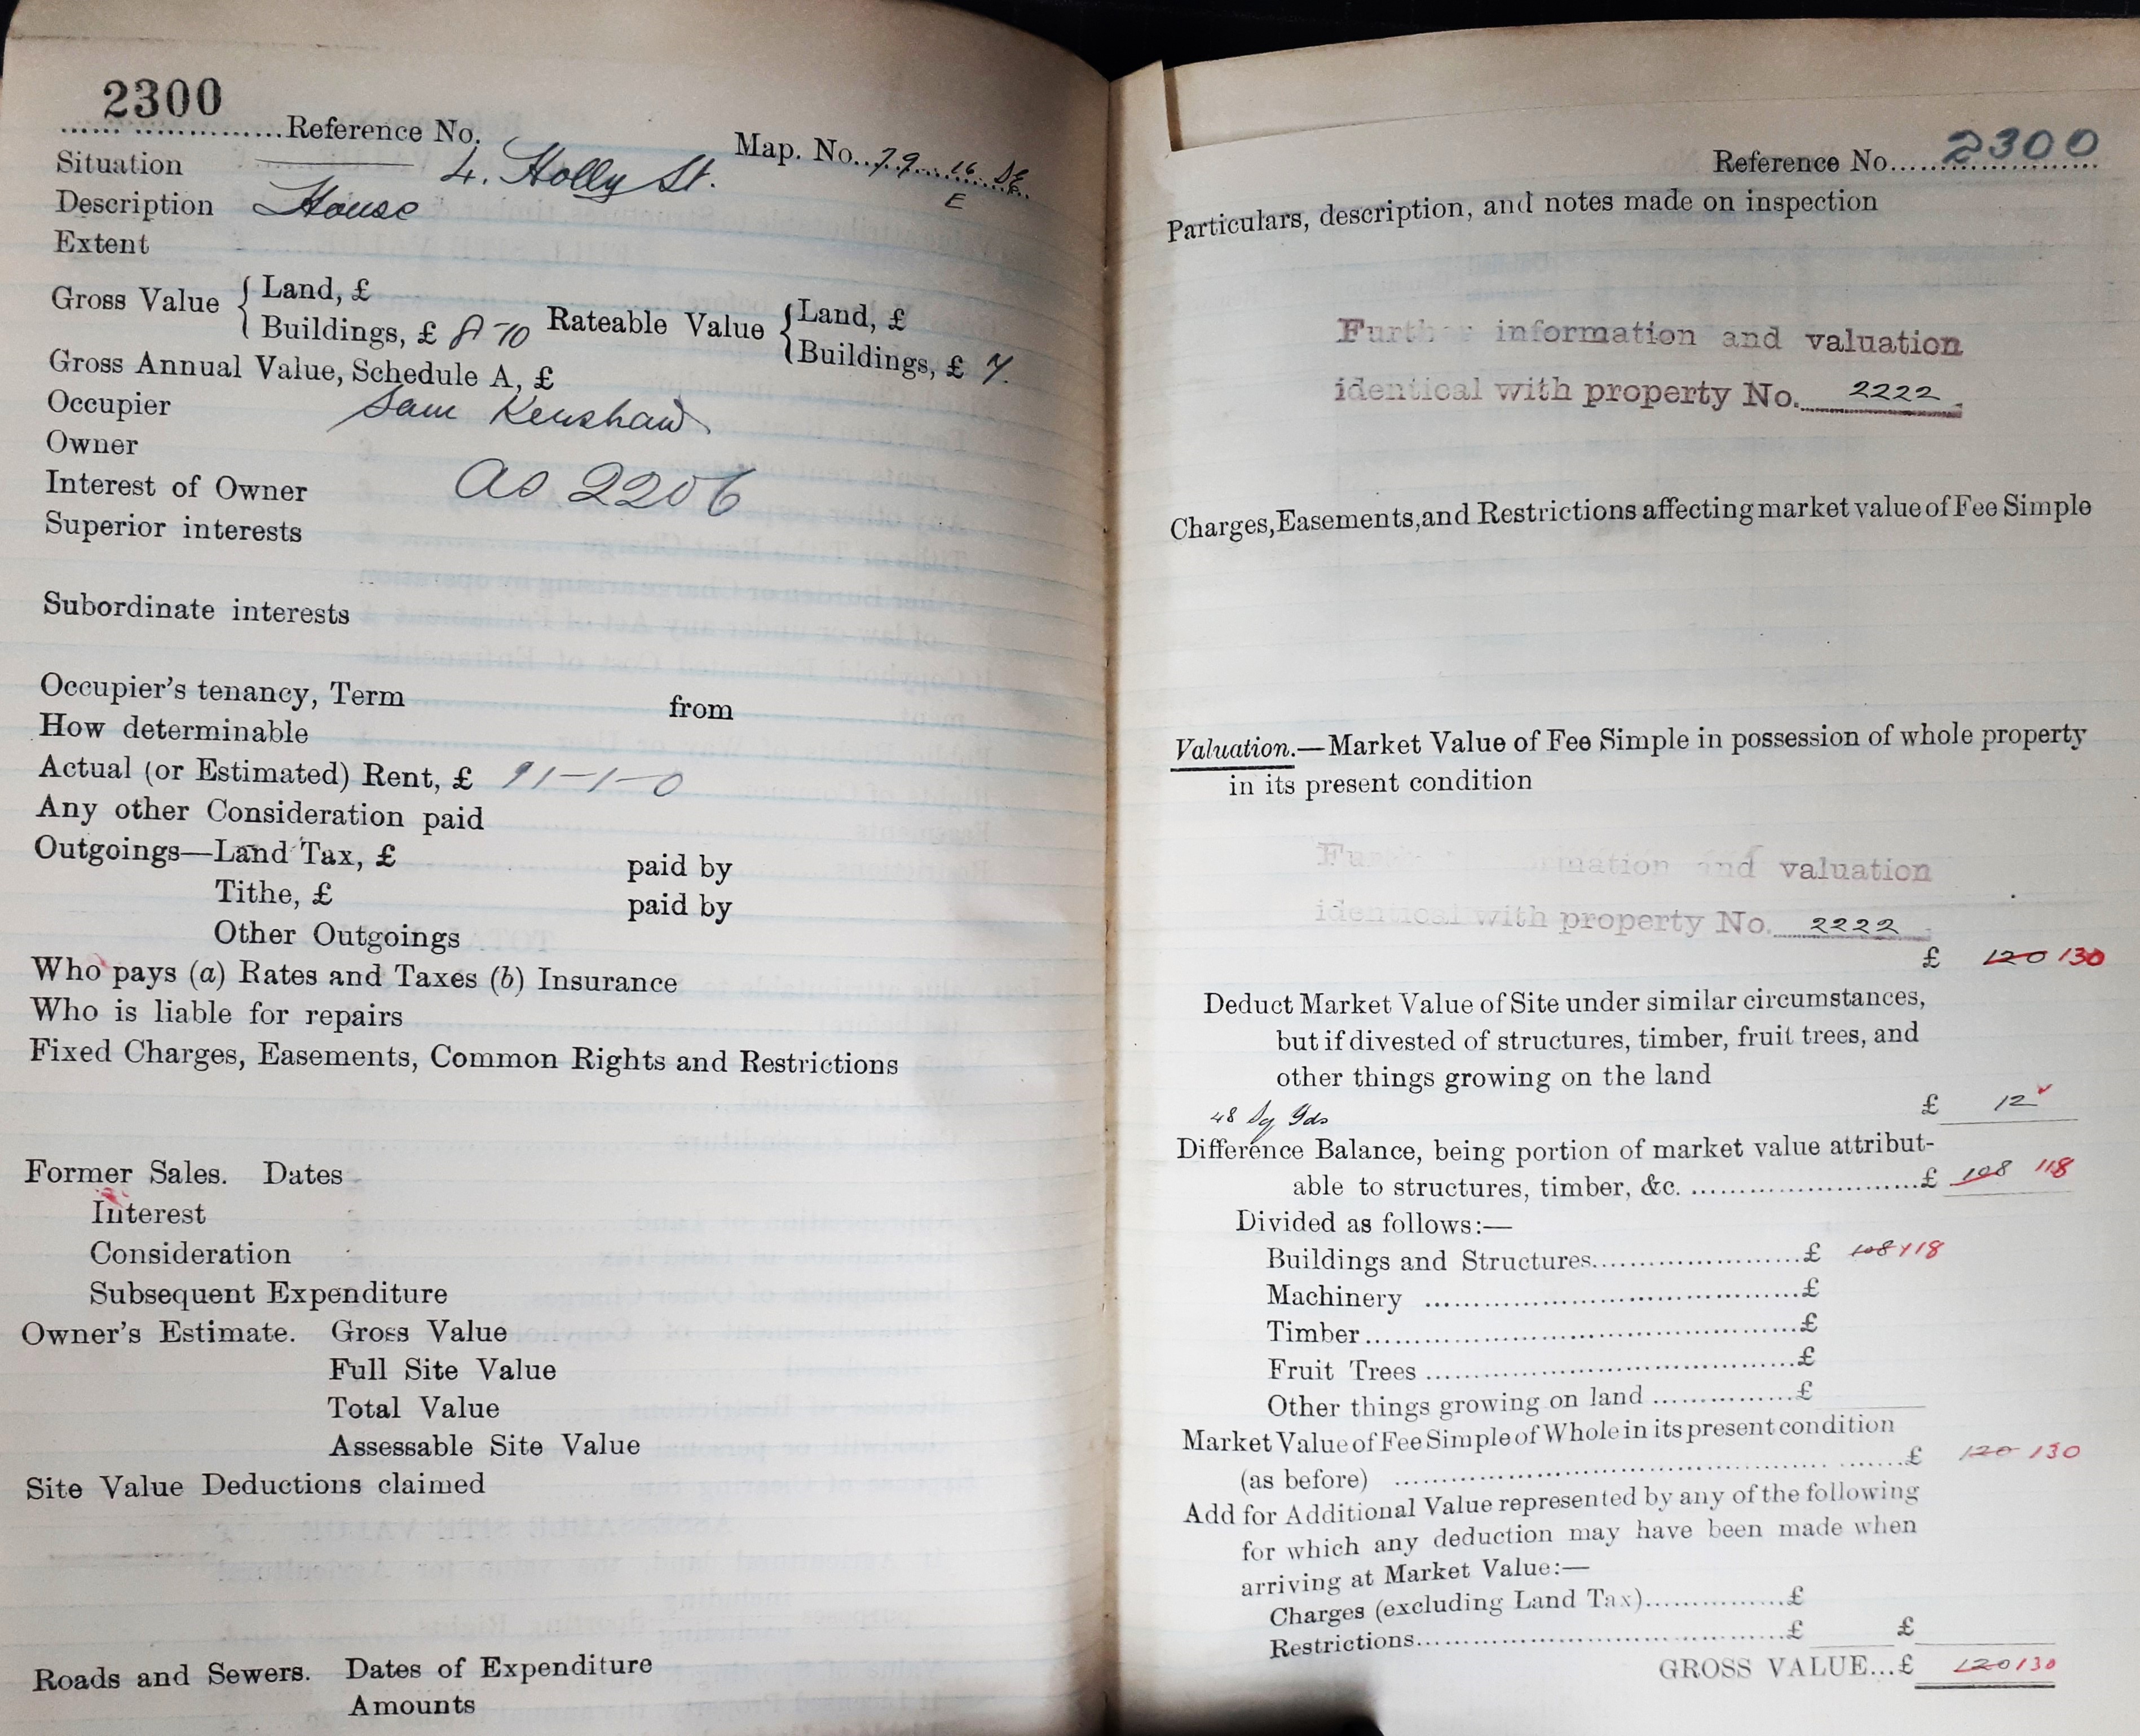 2300
Reference No.
Map. No. 79 16 SE
E
Situation 4. Holly St.
Description House
Extent
Gross Value { Land, £
Buildings, £ 8-10 Rateable Value { Land, £
Buildings, £ 7.
Gross Annual Value, Schedule A, £
Occupier Sam Renshaw
Owner
Interest of Owner as 2206
Superior interests
Subordinate interests
Occupier's tenancy, Term from
How determinable
Actual (or Estimated) Rent, £ 91-1-0
Any other Consideration paid
Outgoings—Land Tax, £ paid by
Tithe, £ paid by
Other Outgoings
Who pays (a) Rates and Taxes (b) Insurance
Who is liable for repairs
Fixed Charges, Easements, Common Rights and Restrictions
Former Sales. Dates
Interest
Consideration
Subsequent Expenditure
Owner's Estimate. Gross Value
Full Site Value
Total Value
Assessable Site Value
Site Value Deductions claimed
Roads and Sewers. Dates of Expenditure
Amounts
Reference No. 2300
Particulars, description, and notes made on inspection
Further information and valuation
identical with property No. 2222
Charges, Easements, and Restrictions affecting market value of Fee Simple
Valuation.—Market Value of Fee Simple in possession of whole property
in its present condition
Further information and valuation
identical with property No. 2222
£ 120 130
Deduct Market Value of Site under similar circumstances,
but if divested of structures, timber, fruit trees, and
other things growing on the land
48 Sq Yds £ 12
Difference Balance, being portion of market value attribut-
able to structures, timber, &c. £ 108 118
Divided as follows:—
Buildings and Structures £ 108 118
Machinery £
Timber £
Fruit Trees £
Other things growing on land £
Market Value of Fee Simple of Whole in its present condition
(as before) £ 120 130
Add for Additional Value represented by any of the following
for which any deduction may have been made when
arriving at Market Value:—
Charges (excluding Land Tax) £
Restrictions £ £
GROSS VALUE...£ 120 130